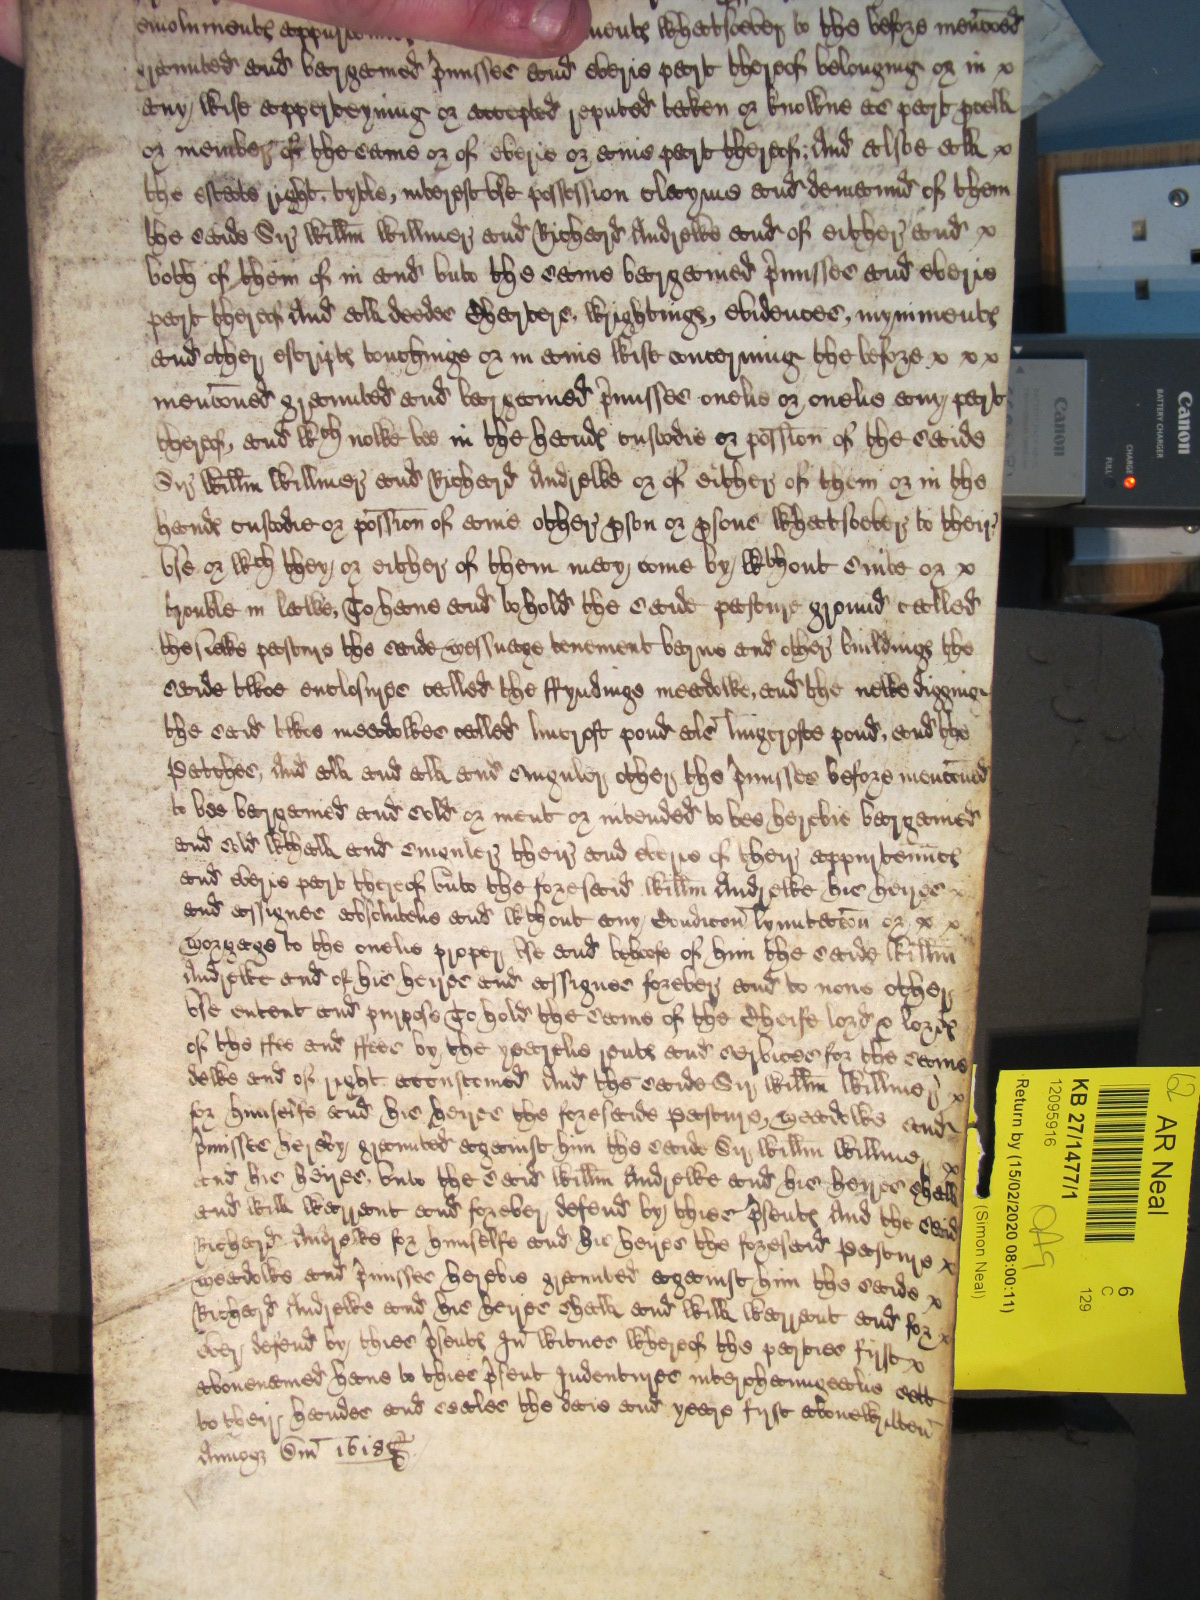 emolumentℯ appur ... mentℯ whatsoever to the before mencōned
graunted and bargained p̄misses and everie part thereof belonging or in x
any wise apperteyning or accepted reputed taken or knowne as part pcell
or member of the same or of everie or anie part thereof. And alsoe all x
the estate right, tytle, interest vse possession claryme and demaund of them
the saide Sir Will̄m Willmer and Richard Andrewe and of either and x
both of them of in and vnto the same bargained p̄misses and everie
part thereof And all deedes Charters, wrightings, evidences, mynimentℯ
and other escriptℯ touchinge or in anie wise concerning the before x x x
mencōned graunted and bargained p̄misses onelie or onelie any part
thereof, and wch nowe bee in the handℯ custodie or possion of the saide
Sir Will̄m Willmer and Richard Andrewe or of either of them or in the
handℯ custodie or possion of anie other pson or psons whatsoever to their
vse or wch they or either of them may come by wthout suite or x
trouble in lawe, To have and to hold the said pasture ground called
the pasture the saide messuage tenement barne and other buildings the
saide twoe enclosures called the ffyndinge meadowe, and the newe digging
the said twoe meadowes called lincroft pond als̄ lingcrofte pond, and the
Patches, And all and all and singuler other the p̄misses before mencōned
to bee bargained and sold or ment or intended to bee herebie bargained
and sold wthall and singuler their and everie of their appurten̄ncℯ
and everie part thereof vnto the foresaid Will̄m Andrewe his heires x
and assignes absolutelie and wthout any Condicon̄ lymitacōn or x x
morgage to the onelie proper vse and behoofe of him the saide Will̄m
Andrewe and of his heires and assignes forever and to none other
vse entent and purpose To hold the same of the Cheife lord & lordℯ
of the ffee and ffees by the yearelie rentℯ and services for the same
dewe and of right accustomed And the saide Sir Will̄m Willmer x
for himselfe and his heires the foresaide Pasture, meadowe and
p̄misses hereby graunted against him the saide Sir Will̄m Willmer x
and his heires, vnto the said Will̄m Andrewe and his heires shall
and will warrant and forever defend by theis p̄sentℯ And the said
Richard Andrewe for himselfe and his heires the foresaid Pasture x
meadowe and p̄misses herebie graunted against him the saide x
Richard Andrewe and his heires shall and will warrant and for x
ever defend by theis p̄sentℯ In witnes whereof the parties first x
abovenamed have to theis p̄sent Indentures interchaungeablie sett
to their handes and seales the daie and yeare first abovewritten
Annoqȝ Dn̄i 1618
62 AR Neal
KB 27/1477/1
12095916
Return by (15/02/2020 08:00:11)
(Simon Neal)
6
C
129
Canon
BATTERY CHARGER
CHARGE
FULL
Canon